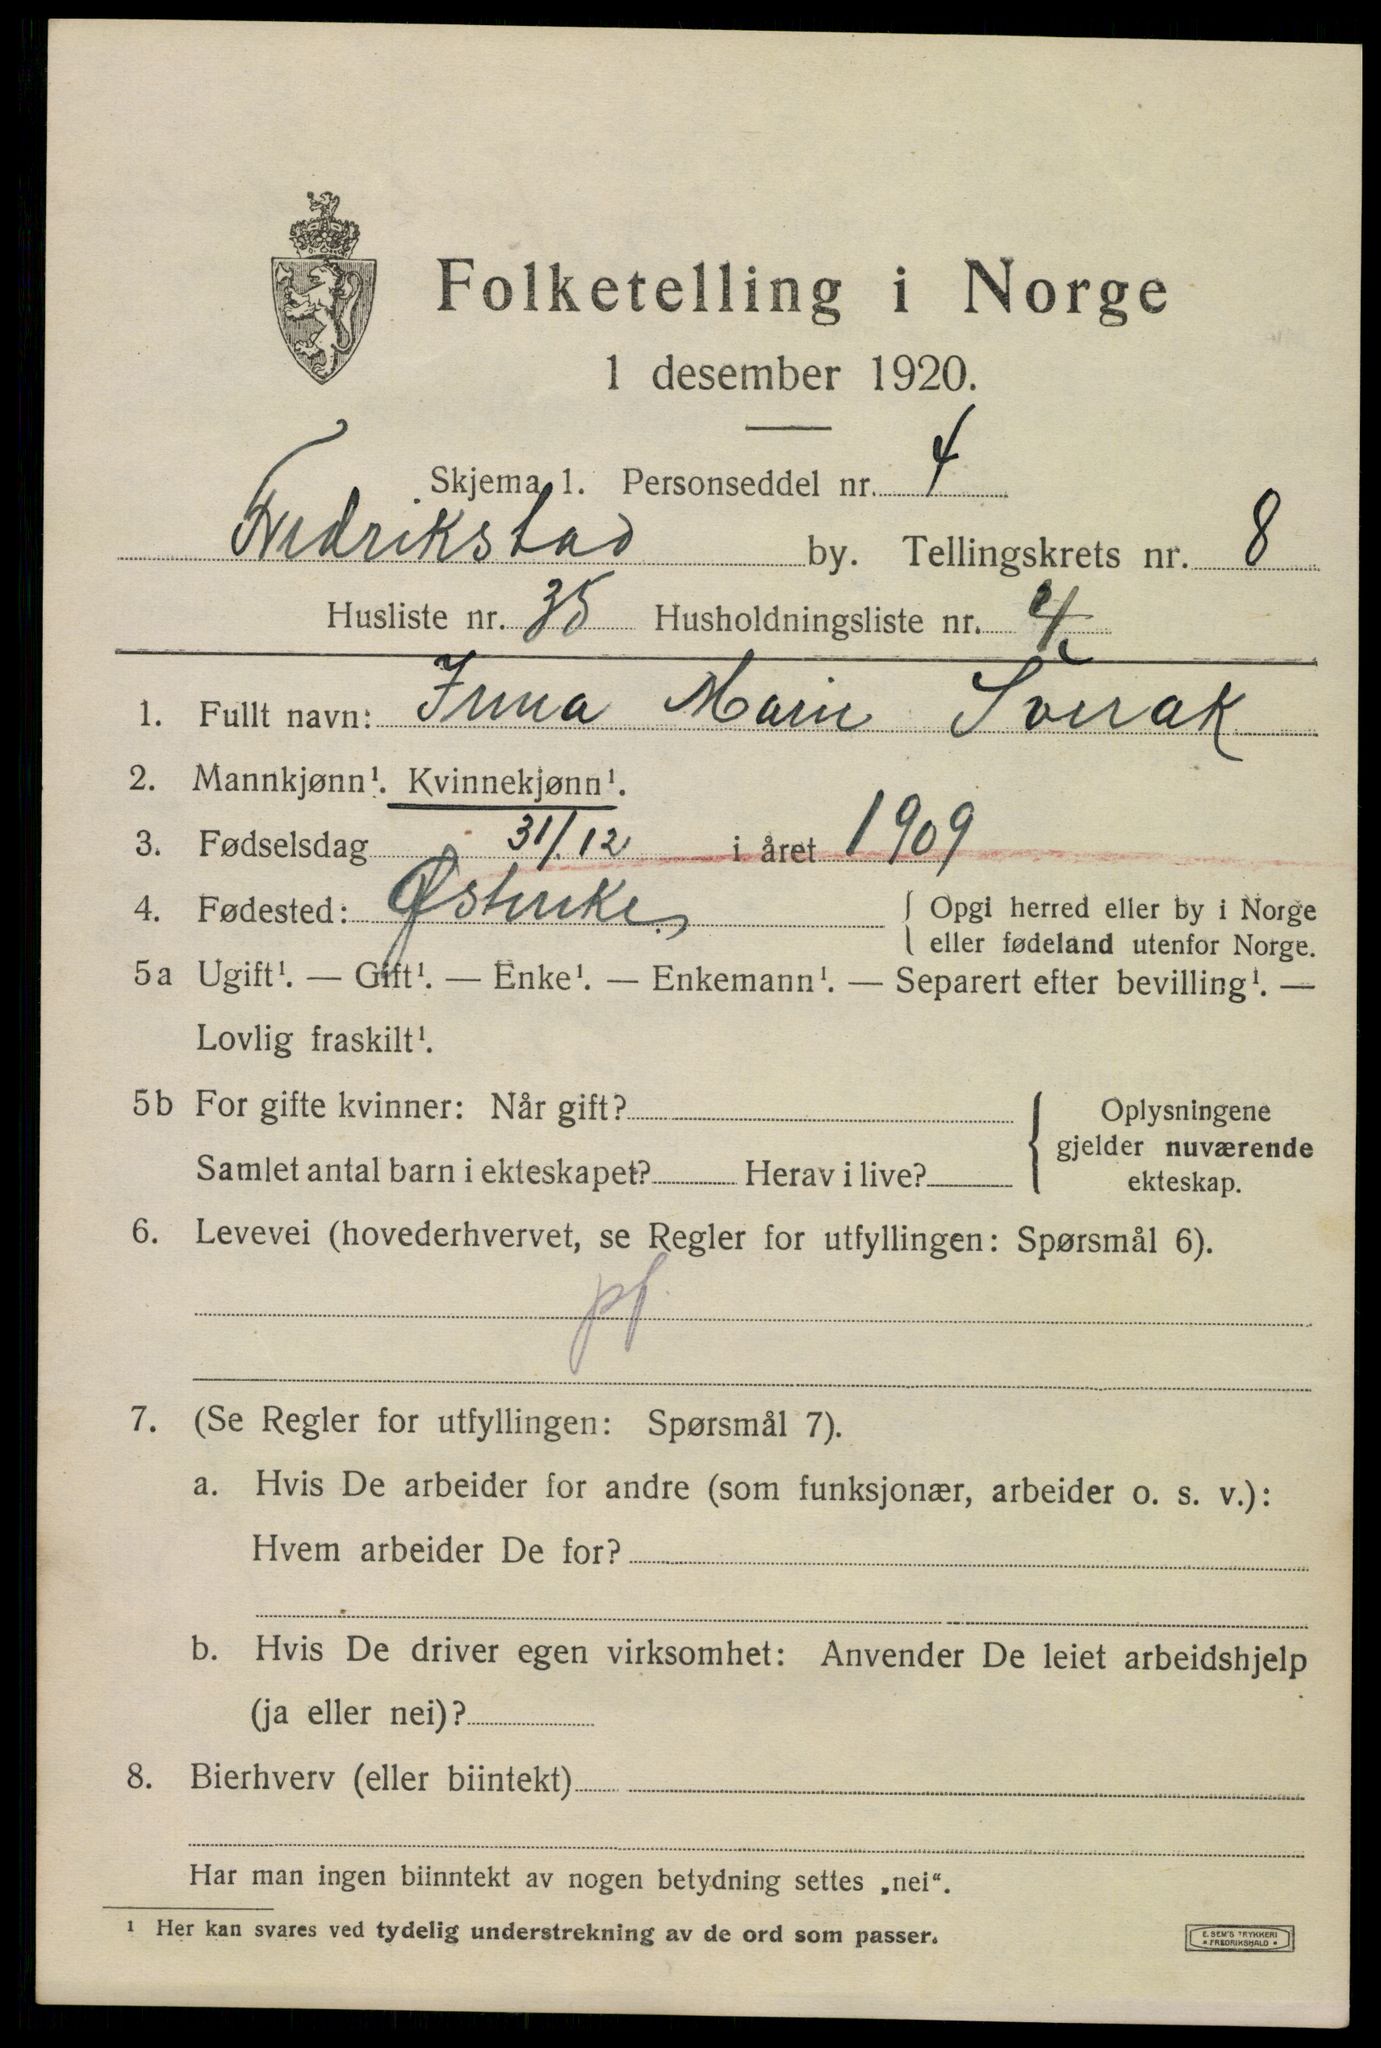 Folketelling i Norge
1 desember 1920.
Skjema 1. Personseddel nr. 4
Fredrikstad by. Tellingskrets nr. 8
Husliste nr. 35 Husholdningsliste nr. 4
1. Fullt navn: Irma Marie Sverak
2. Mannkjønn¹. Kvinnekjønn¹.
3. Fødselsdag 31/12 i året 1909
4. Fødested: Østerrike { Opgi herred eller by i Norge
eller fødeland utenfor Norge.
5a Ugift¹. — Gift¹. — Enke¹. — Enkemann¹. — Separert efter bevilling¹. —
Lovlig fraskilt¹.
5b For gifte kvinner: Når gift? { Oplysningene
gjelder nuværende
Samlet antal barn i ekteskapet? Herav i live? ekteskap.
6. Levevei (hovederhvervet, se Regler for utfyllingen: Spørsmål 6).
pf
7. (Se Regler for utfyllingen: Spørsmål 7).
a. Hvis De arbeider for andre (som funksjonær, arbeider o. s. v.):
Hvem arbeider De for?
b. Hvis De driver egen virksomhet: Anvender De leiet arbeidshjelp
(ja eller nei)?
8. Bierhverv (eller biintekt)
Har man ingen biinntekt av nogen betydning settes „nei“.
¹ Her kan svares ved tydelig understrekning av de ord som passer.
E. SEM'S TRYKKERI
• FREDRIKSHALD •